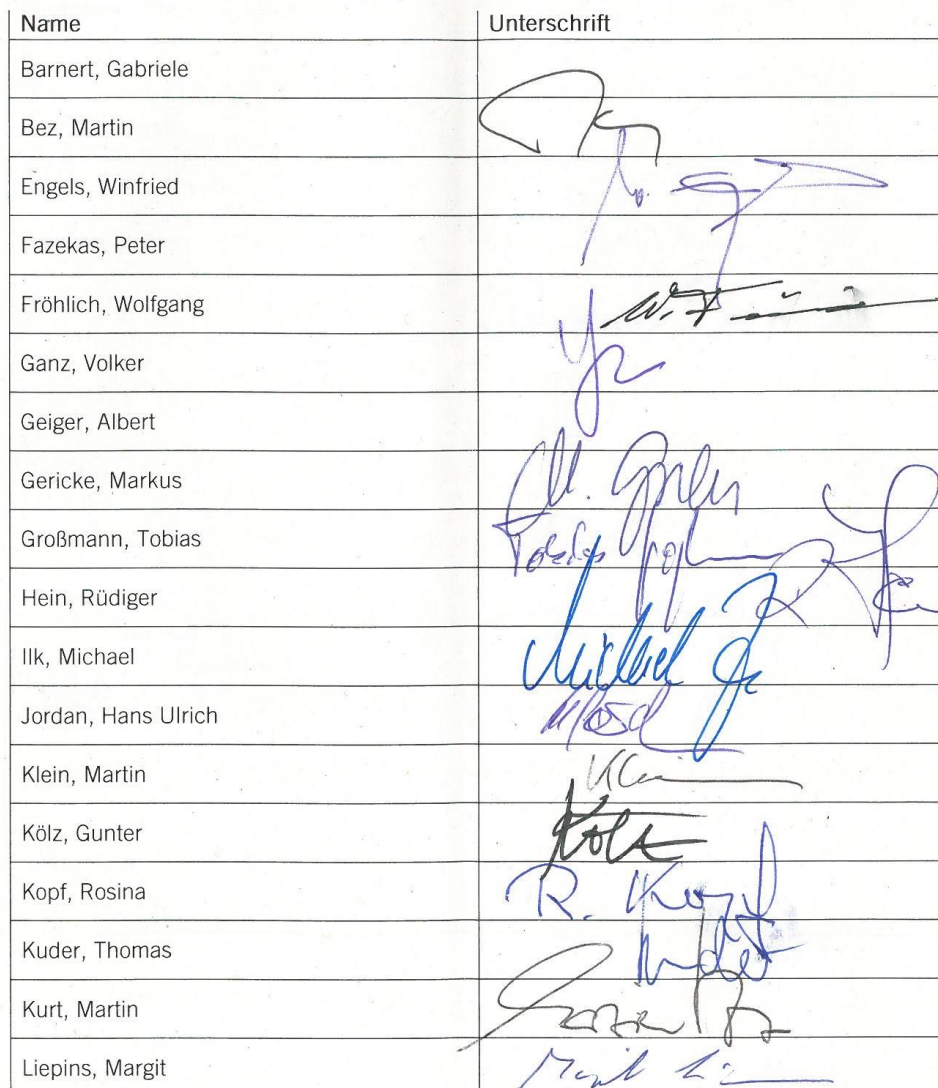 Name Unterschrift
Barnert, Gabriele
Bez, Martin
Engels, Winfried
Fazekas, Peter
Fröhlich, Wolfgang W. F
Ganz, Volker
Geiger, Albert
Gericke, Markus M.
Großmann, Tobias Tobias
Hein, Rüdiger R.
Ilk, Michael Michael
Jordan, Hans Ulrich
Klein, Martin
Kölz, Gunter Kölz
Kopf, Rosina R. Kopf
Kuder, Thomas Kuder
Kurt, Martin
Liepins, Margit Margit